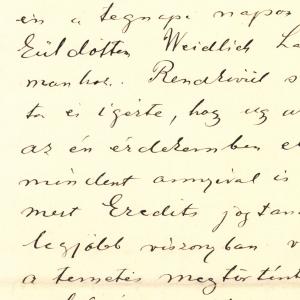 én a tegnapi napon
Küldöttem Weidlich La
manhoz. Rendkivül s
ta és igérte, hogy
az én érdekemben
mindent annyival is
mert Eredits jogtan
legjobb viszonyban v
a temetés megtörtént